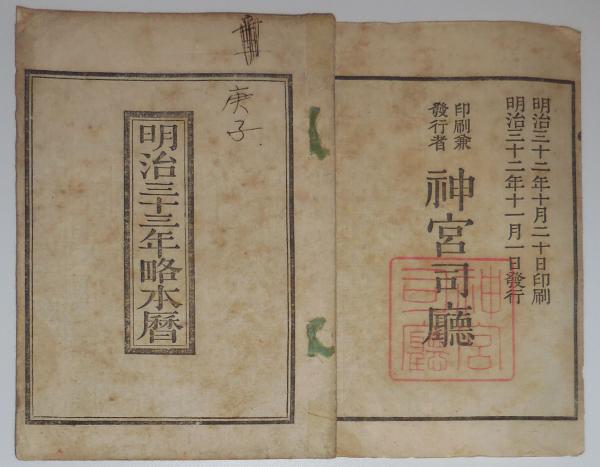 庚子
明治三十三年略本暦
明治三十二年十月二十日印刷
明治三十二年十一月一日發行
印刷兼
發行者
神宮司廳
神宮
司廳